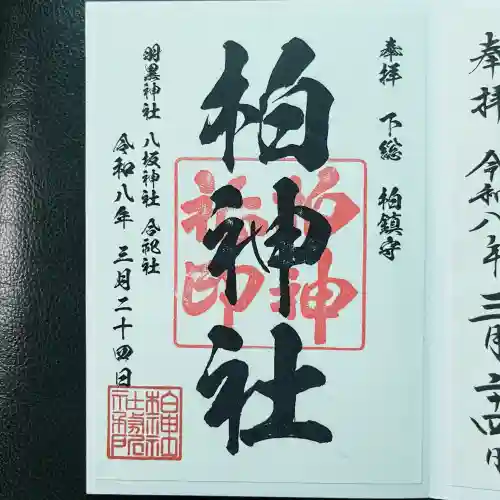 奉拝 令和八年 三月 二十四日
奉拝 下総 柏鎮守
柏神社
柏神社印
羽黒神社 八坂神社 合祀社
令和八年 三月二十四日